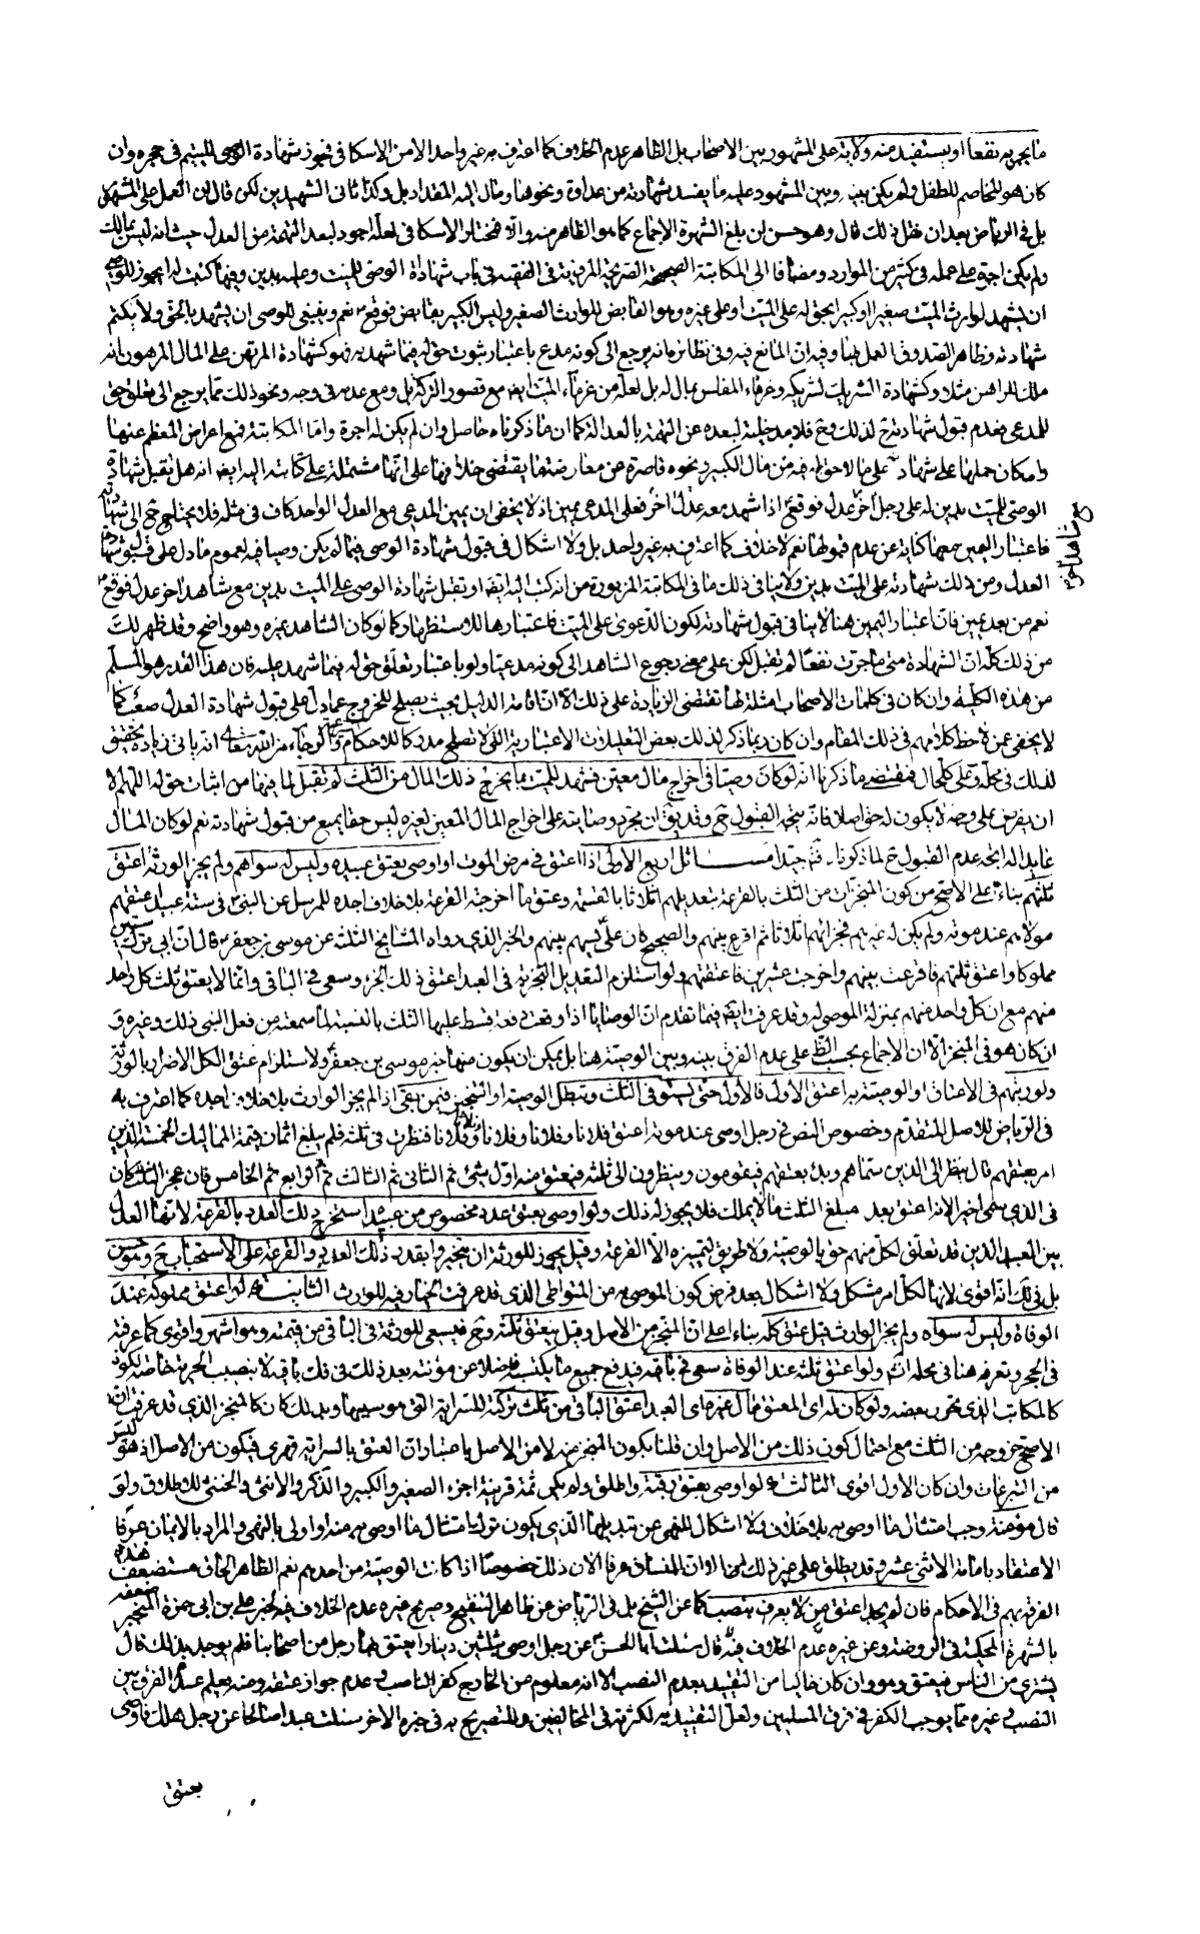 ما يجر به نفعا او يستفيد منه ولاية على المشهور بين الاصحاب بل الظاهر عدم الخلاف كما اعترف به غير واحد الا من الاسكافى فجوز شهادة الوصى لليتيم فى حجره وان
كان هو المخاصم للطفل ولم يكن بينه وبين المشهود عليه ما يفسد شهادته من عداوة ونحوها ومال اليه المقداد بل وكذا ثانى الشهيدين لكن قال ان العمل على المشهور
بل فى الرياض بعد ان نقل ذلك قال وهو حسن ان بلغ الشهرة الاجماع كما هو الظاهر منه والا فمختار الاسكافى لعله اجود لبعد التهمة من العدل حيث انه ليس بمالك
ولم يكن اجرة على عمله فى كثير من الموارد ومضافا الى المكاتبة الصحيحة الصريحة المروية فى الفقيه فى باب شهادة الوصى للميت وعليه بدين وفيها كتبت اليه ايجوز للوصى
ان يشهد لوارث الميت صغيرا او كبيرا بحق له على الميت او على غيره وهو القابض للوارث الصغير وليس الكبير بقابض فوقع نعم وينبغى للوصى ان يشهد بالحق ولا يكتم
شهادته وظاهر الصدوق العمل بها وفيه ان المانع فيه وفى نظائره انه يرجع الى كونه مدع باعتبار ثبوت حق له فيما شهد به فهو كشهادة المرتهن على المال المرهون انه
ملك للراهن مثلا وكشهادة الشريك لشريكه وغرماء المفلس بمال له بل لعله من غرماء الميت ايضا مع قصور التركة بل ومع عدمه فى وجه ونحو ذلك مما يرجع الى تعلق حق
للمدعى فعدم قبول شهادته ح لذلك وح فلا مدخلية لبعده عن التهمة بالعدالة كما ان ما ذكرناه حاصل وان لم يكن له اجرة واما المكاتبة فمع اعراض المعظم عنها
وامكان حملها على شهادته على ما لا حق له فيه من مال الكبير ونحوه قاصرة عن معارضة ما يقتضى خلافها على انها مشتملة على كتابته اليه ايضا انه هل تقبل شهادة
الوصى للميت بدين له على رجل اخر عدل فوقع اذا شهد معه عدل اخر فعلى المدعى يمين اذ لا يخفى ان يمين المدعى مع العدل الواحد كاف فى مثله فلا يحتاج ح الى شهادته
فاعتبار اليمين معها كناية عن عدم قبولها نعم لا خلاف كما اعترف به غير واحد بل ولا اشكال فى قبول شهادة الوصى فيما لم يكن وصيا فيه لعموم ما دل على قبول شهادة
العدل ومن ذلك شهادته على الميت بدين ولا ينافى ذلك ما فى المكاتبة المزبورة من انه كتب اليه ايضا او تقبل شهادة الوصى على الميت بدين مع شاهد اخر عدل فوقع
نعم من بعد يمين فان اعتبار اليمين هنا لا ينافى قبول شهادته لكون الدعوى على الميت فاعتبارها للاستظهار كما لو كان الشاهد غيره وهو واضح وقد ظهر لك
من ذلك كله ان الشهادة متى ما جرت نفعا لم تقبل لكن على معنى رجوع الشاهد الى كونه مدعيا ولو باعتبار تعلق حق له فيما شهد عليه فان هذا القدر هو المسلم
من هذه الكلية وان كان فى كلمات الاصحاب امثلة لها تقتضى الزيادة على ذلك الا ان اقامة الدليل بحيث يصلح للخروج عما دل على قبول شهادة العدل صعب كما
لا يخفى على من لاحظ كلامهم فى ذلك المقام وان كان ربما ذكر لذلك بعض التعليلات الاعتبارية التى لا تصلح مدركا للاحكام الشرعية والرجاء من الله تعالى انه ياتى زيادة تحقيق
لذلك فى محله وعلى كل حال فمقتضى ما ذكرنا انه لو كان وصيا فى اخراج مال معين فشهد للميت بما يخرج به ذلك المال من الثلث لم تقبل لما فيها من اثبات حق له اللهم الا
ان يفرض على وجه لا يكون له حق اصلا فانه يتجه القبول ح وقد يق ان مجرد وصايته على اخراج المال المعين لغيره ليس حقا يمنع من قبول شهادته نعم لو كان المال
عايدا له اتجه عدم القبول ح لما ذكرنا فتم جيدا مسائل اربع الاولى اذا اعتق فى مرض الموت او اوصى بعتق عبيده وليس له سواهم ولم يجز الورثة اعتق
ثلثهم بناء على الاصح من كون المنجزات من الثلث بالقرعة بتعديلهم اثلاثا بالقسمة وعتق ما اخرجته القرعة بلا خلاف اجده للمرسل عن النبى فى ستة عبيد اعتقهم
مولاهم عند موته ولم يكن له غيرهم فجزاهم اثلاثا ثم اقرع بينهم والصحيح كان على يسهم بينهم والخبر الذى رواه المشايخ الثلثة عن موسى بن جعفر قال ان ابى ترك ستين
مملوكا واعتق ثلثهم فاقرعت بينهم واخرجت عشرين فاعتقتهم ولو استلزم التعديل التجزية فى العبد اعتق ذلك الجزء وسعى فى الباقى وانما لا يعتق ثلث كل واحد
منهم مع ان كل واحد منهم بمنزلة الموصى له وقد عرفت ايضا فيما تقدم ان الوصايا اذا وقعت دفعة قسط عليها الثلث بالنسبة لما سمعته من فعل النبى ذلك وغيره و
ان كان هو فى المنجز الا ان الاجماع بحسب الظ على عدم الفرق بينه وبين الوصية هنا بل يمكن ان يكون منها خبر موسى بن جعفر ولاستلزام عتق الكل الاضرار بالورثة
ولو رتبهم فى الاعتاق او الوصية به اعتق الاول فالاول حتى يستوفى الثلث وتبطل الوصية او التنجيز فيمن بقى اذا لم يجز الوارث بلا خلاف اجده كما اعترف به
فى الرياض للاصل المتقدم وخصوص النص فى رجل اوصى عند موته اعتق فلانا وفلانا وفلانا وفلانا فنظرت فى ثلثه فلم يبلغ اثمان قيمة المماليك الخمسة الذين
امر بعتقهم قال ينظر الى الذين سماهم وبدئ بعتقهم فيقومون وينظرون الى ثلثه فيعتق منه اول شئ ثم الثانى ثم الثالث ثم الرابع ثم الخامس فان عجز الثلث كان
فى الذى سمى اخيرا لانه اعتق بعد مبلغ الثلث ما لا يملك فلا يجوز له ذلك ولو اوصى بعتق عدد مخصوص من عبيده استخرج ذلك العدد بالقرعة لانها العدل
بين العبيد الذين قد تعلق لكل منهم حق بالوصية ولا طريق لتميزه الا القرعة وقيل يجوز للورثة ان يتخيروا بقدر ذلك العدد والقرعة على الاستحباب ح وهو حسن
بل فى لك انه اقوى لانها لكل امر مشكل ولا اشكال بعد فرض كون الموصى به من المتواطى الذى قد عرفت الخيار فيه للوارث الثانية لو اعتق مملوكه عند
الوفاة وليس له سواه ولم يجز الوارث قيل عتق كله بناء على ان المنجز من الاصل وقيل ينعتق ثلثه وح فيسعى للورثة فى الباقى من قيمته وهو اشهر واقوى كما عرفته
فى الحجر وتعرفه هنا فى محله انش ولو اعتق ثلثه عند الوفاة سعى فى باقيه فيدفع جميع ما يكتسبه فاضلا عن مؤنته بعد ذلك فى فك باقيه لا بنصيب الحرية خاصة لكونه
كالمكاتب الذى تحرر بعضه ولو كان له اى المعتق مال غيره اى العبد اعتق الباقى من ثلث تركته للسراية التى هو سببها وبذلك كان كالمنجز الذى قد عرفت ان
الاصح خروجه من الثلث مع احتمال كون ذلك من الاصل وان قلنا بكون المنجز منه لا من الاصل باعتبار ان العتق بالسراية قهرى فيكون من الاصل اذ هو ليس
من التبرعات وان كان الاول اقوى الثالثة لو اوصى بعتق رقبة واطلق ولم يكن ثمة قرينة اجزء الصغير والكبير والذكر والانثى والخنثى للاطلاق ولو
قال مؤمنة وجب امتثال ما اوصى به بلا خلاف ولا اشكال للنهى عن تبديلها الذى يكون ترك امتثال ما اوصى به منه او اولى بالنهى والمراد بالايمان عرفا
الاعتقاد بامامة الاثنى عشر وقد يطلق على غير ذلك لغة الا ان المنساق عرفا الان ذلك خصوصا اذا كانت الوصية من احدهم نعم الظاهر الحاق مستضعف هذه
الفرقة بهم فى الاحكام فان لم يجد اعتق من لا يعرف بنصب كما عن الشيخ بل فى الرياض عن ظاهر التنقيح وصريح غيره عدم الخلاف فيه لخبر على بن ابى حمزة المنجبر ضعفه
بالشهرة المحكية فى الروضة وعن غيره عدم الخلاف فيه قال سئلت ابا الحسن عن رجل اوصى بثلثين دينارا يعتق بها رجل من اصحابنا فلم يوجد بذلك قال
يشترى من الناس فيعتق وهو وان كان خاليا من التقييد بعدم النصب الا انه معلوم من الخارج كفر الناصب وعدم جواز عتقه ومنه يعلم عدم الفرق بين
النصب وغيره مما يوجب الكفر فى فرق المسلمين ولعل التقييد به لكثرته فى المخالفين وللتصريح به فى خبره الاخر سئلت عبدا صالحا عن رجل هلك فاوصى
بعتق
ح شاهد اخر